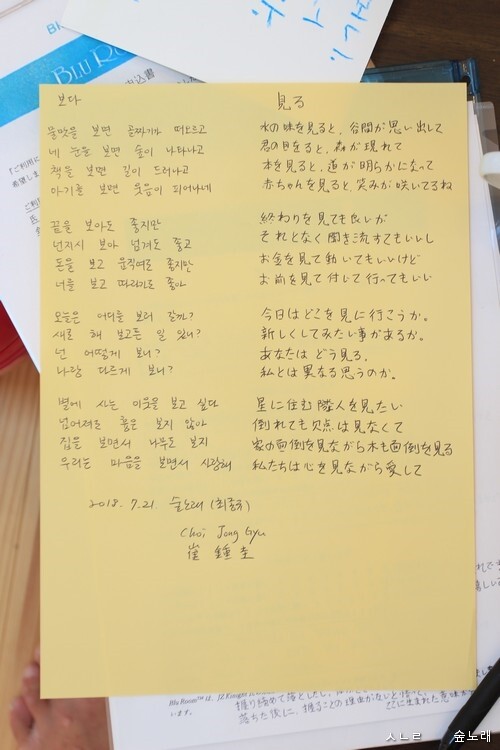 BLU RO
込書
보다
見る
물맛을 보면 골짜기가 떠오르고
水の味を見ると、谷間が思い出して
네 눈을 보면 숲이 나타나고
君の目をると、森が現れて
책을 보면 길이 드러나고
本を見ると、道が明らかになって
아기를 보면 웃음이 피어나네
赤ちゃんを見ると、笑みが咲いてるね
끝을 보아도 좋지만
終わりを見ても良いが
넌지시 보아 넘겨도 좋고
それとなく聞き流すてもいいし
돈을 보고 움직여도 좋지만
お金を見て動いてもいいけど
너를 보고 따라가도 좋아
お前を見て付して行ってもいい
오늘은 어디를 보러 갈까?
今日はどこを見に行こうか。
새로 해 보고픈 일 있니?
新しくしてみたい事があるか。
넌 어떻게 보니?
あなたは どう見る。
나랑 다르게 보니?
私とは異なる思うのか。
별에 사는 이웃을 보고 싶다
星に住む隣人を見たい
넘어져도 흉은 보지 않아
倒れても欠点は見なくて
집을 보면서 나무도 보지
家の面倒を見ながら木も面倒を見る
우리는 마음을 보면서 사랑해
私たちは心を見ながら愛して
2018. 7. 21. 숲노래 (최종규)
Choi Jong Gyu
崔 鍾 圭
握り締めて落としたし
落ちた後に、握ることの理由がないと
ここに生まれた意味が
います。
ㅅㄴㄹ 숲노래